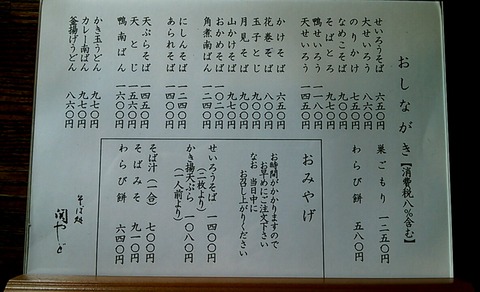 おしながき【消費税八%含む】
せいろうそば 六五〇円
大せいろう 八五〇円
のりかけ 七五〇円
なめこそば 九〇〇円
そばとろ 九七〇円
鴨せいろう 一一八〇円
天せいろう 一四五〇円
かけそば 六五〇円
花巻そば 八〇〇円
玉子とじ 八〇〇円
月見そば 七〇〇円
山かけそば 九七〇円
おかめそば 一二〇〇円
角煮南ばん 一二〇〇円
にしんそば 一二四〇円
あられそば 一四〇〇円
天ぷらそば 一四五〇円
天とじ 一五〇〇円
鴨南ばん 一六〇〇円
かき玉うどん 九七〇円
カレー南ばん 九七〇円
釜揚げうどん 八六〇円
巣ごもり 一二五〇円
わらび餅 五八〇円
おみやげ
お時間がかかりますので
お早めにご注文下さい
なお 当日中に
お召し上がりください
せいろうそば 一四〇〇円
(二枚より)
かき揚天ぷら 一〇八〇円
(一人前より)
そば汁(一合) 七〇〇円
そばみそ 九一〇円
わらび餅 六四〇円
そば処
関やど